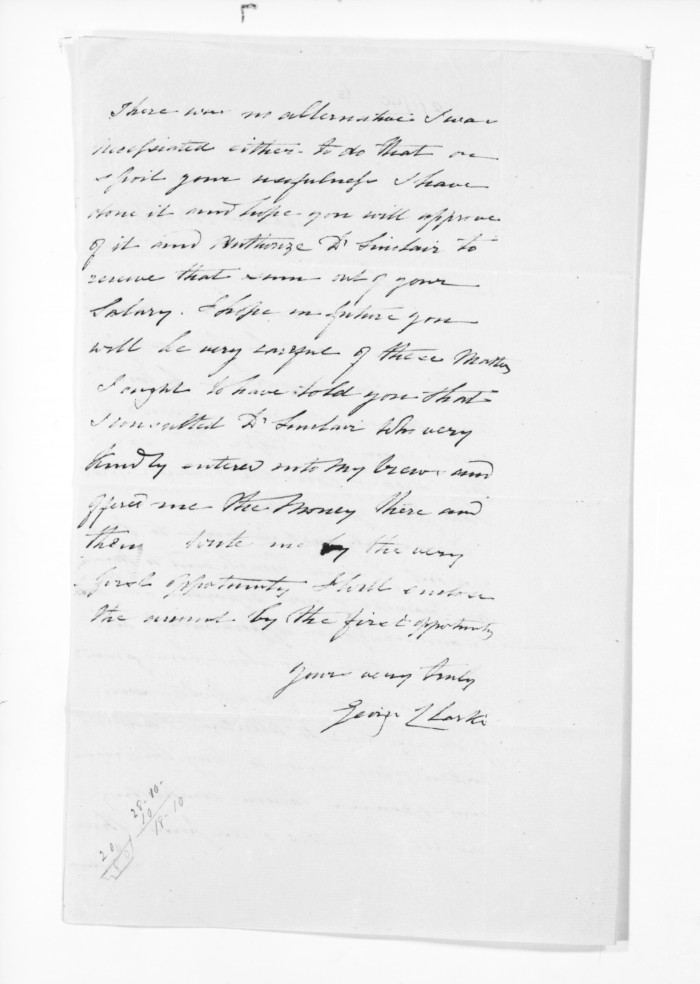 There was no alternative I was
necessiated either to do that or
spoil your usefulness I have
done it and hope you will approve
of it and Authorize Dr Sinclair to
receive that sum out of your
Salary. I hope in future you
will be very careful of these Matters
I ought to have told you that
I consulted Dr Sinclair who very
Kindly entered into my views and
offered me the Money there and
then write me by the very
first opportunity I shall enclose
the account by the first opportunity
Yours very truly
George Clarke
28.10.
20 10
18.10